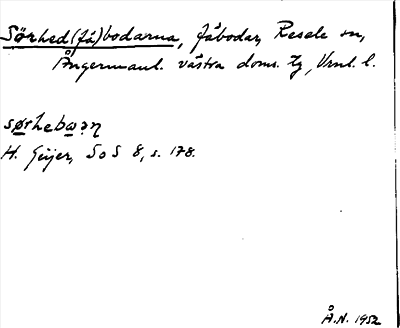 Sörhed(få)bodarna, fäbodar, Resele sn,
Ångermanl. västra doms. tg, Vrnl. l.
sørhebωəη
H. Geijer, SoS 8, s. 178.
Å.N. 1952